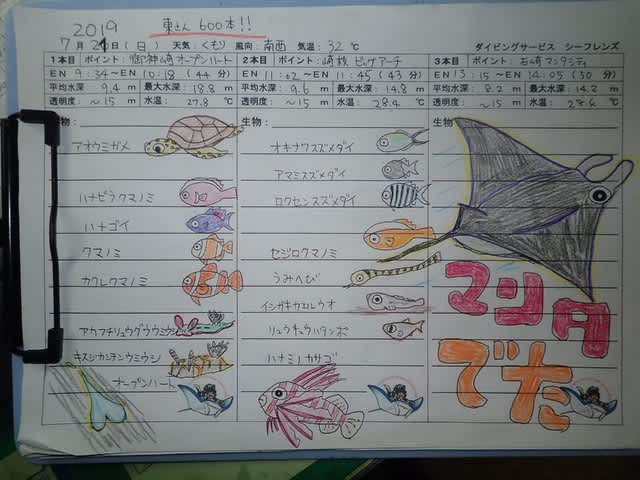 2019
東さん 600本!!
7月21日(日) 天気:くもり 風向:南西 気温:32℃ ダイビングサービス シーフレンズ
1本目 ポイント:御神崎オープンハート
EN 9:34〜EN 10:18 (44分)
平均水深: 9.4 m 最大水深: 18.8 m
透明度: 〜15 m 水温: 27.8 ℃
生物:
アオウミガメ
ハナビラクマノミ
ハナゴイ
クマノミ
カクレクマノミ
アカフチリュウグウウミウシ
キスジカンテンウミウシ
オープンハート
2本目 ポイント:崎枝 ビッグアーチ
EN 11:02〜EN 11:45 (43分)
平均水深: 9.6 m 最大水深: 14.8 m
透明度: 〜15 m 水温: 28.4 ℃
生物:
オキナワスズメダイ
アマミスズメダイ
ロクセンスズメダイ
セジロクマノミ
うみへび
イシガキカエルウオ
リュウキュウハタンポ
ハナミノカサゴ
3本目 ポイント:石崎マンタシティ
EN 13:15〜EN 14:05 (50分)
平均水深: 8.2 m 最大水深: 14.2 m
透明度: 〜15 m 水温: 28.6 ℃
生物
マンタ
でた